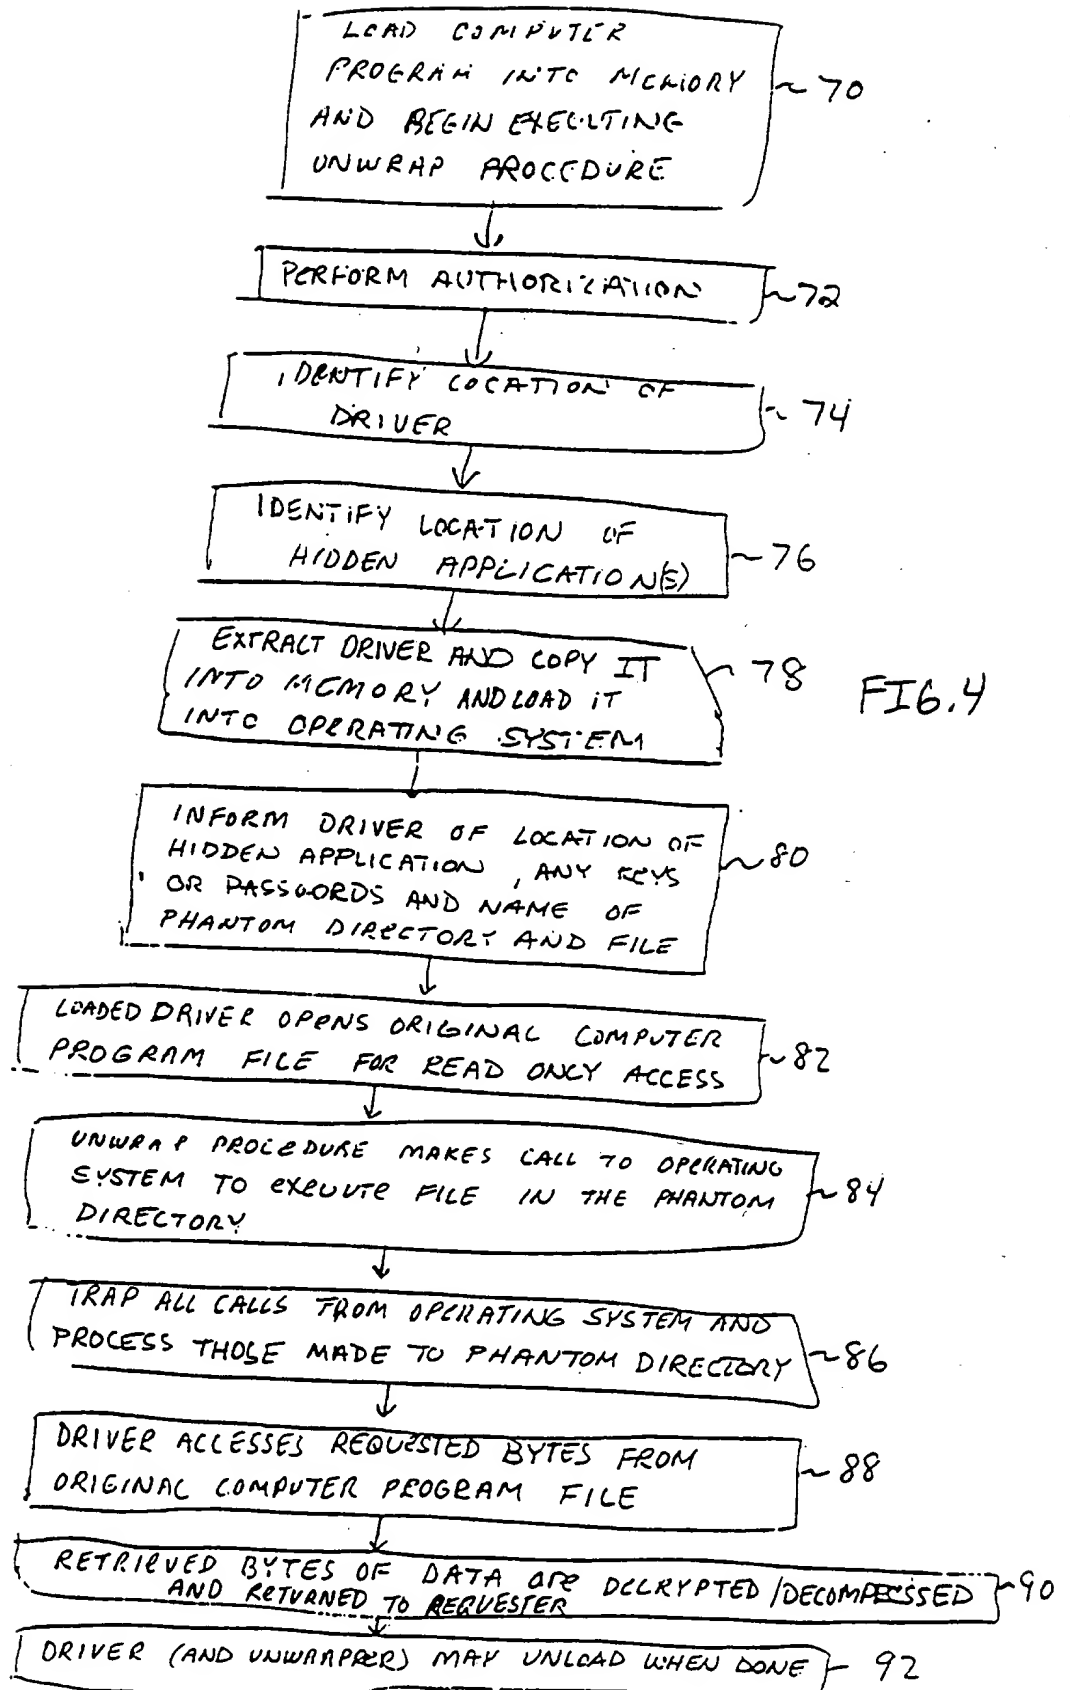 LOAD COMPUTER
PROGRAM INTO MEMORY
AND BEGIN EXECUTING
UNWRAP PROCEDURE
~ 70
PERFORM AUTHORIZATION
~72
IDENTIFY LOCATION OF
DRIVER
~ 74
IDENTIFY LOCATION OF
HIDDEN APPLICATION(S)
~ 76
EXTRACT DRIVER AND COPY IT
INTO MEMORY AND LOAD IT
INTO OPERATING SYSTEM
~ 78
FIG. 4
INFORM DRIVER OF LOCATION OF
HIDDEN APPLICATION, ANY KEYS
OR PASSWORDS AND NAME OF
PHANTOM DIRECTORY AND FILE
~ 80
LOADED DRIVER OPENS ORIGINAL COMPUTER
PROGRAM FILE FOR READ ONLY ACCESS
~ 82
UNWRAP PROCEDURE MAKES CALL TO OPERATING
SYSTEM TO EXECUTE FILE IN THE PHANTOM
DIRECTORY
~ 84
TRAP ALL CALLS FROM OPERATING SYSTEM AND
PROCESS THOSE MADE TO PHANTOM DIRECTORY
~86
DRIVER ACCESSES REQUESTED BYTES FROM
ORIGINAL COMPUTER PROGRAM FILE
~ 88
RETRIEVED BYTES OF DATA ARE DECRYPTED/DECOMPRESSED
AND RETURNED TO REQUESTER
~90
DRIVER (AND UNWRAPPER) MAY UNLOAD WHEN DONE
92